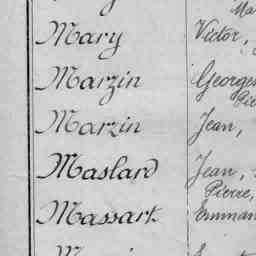 Mary Victor,
Marzin Georges
Marzin Jean,
Maslard Jean,
Pierre,
Massart Emman